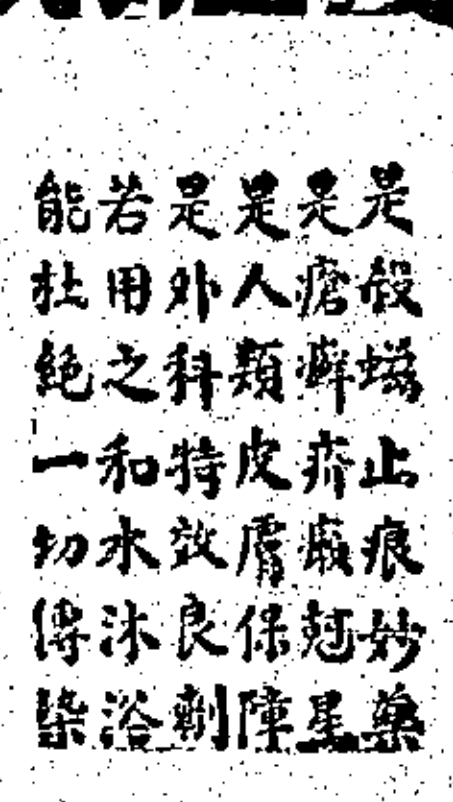 是殺螆止痕妙藥
是瘡癬疥癩尅星
是人類皮膚保障
是外科特效良劑
若用之和水沐浴
能杜絕一切傳染